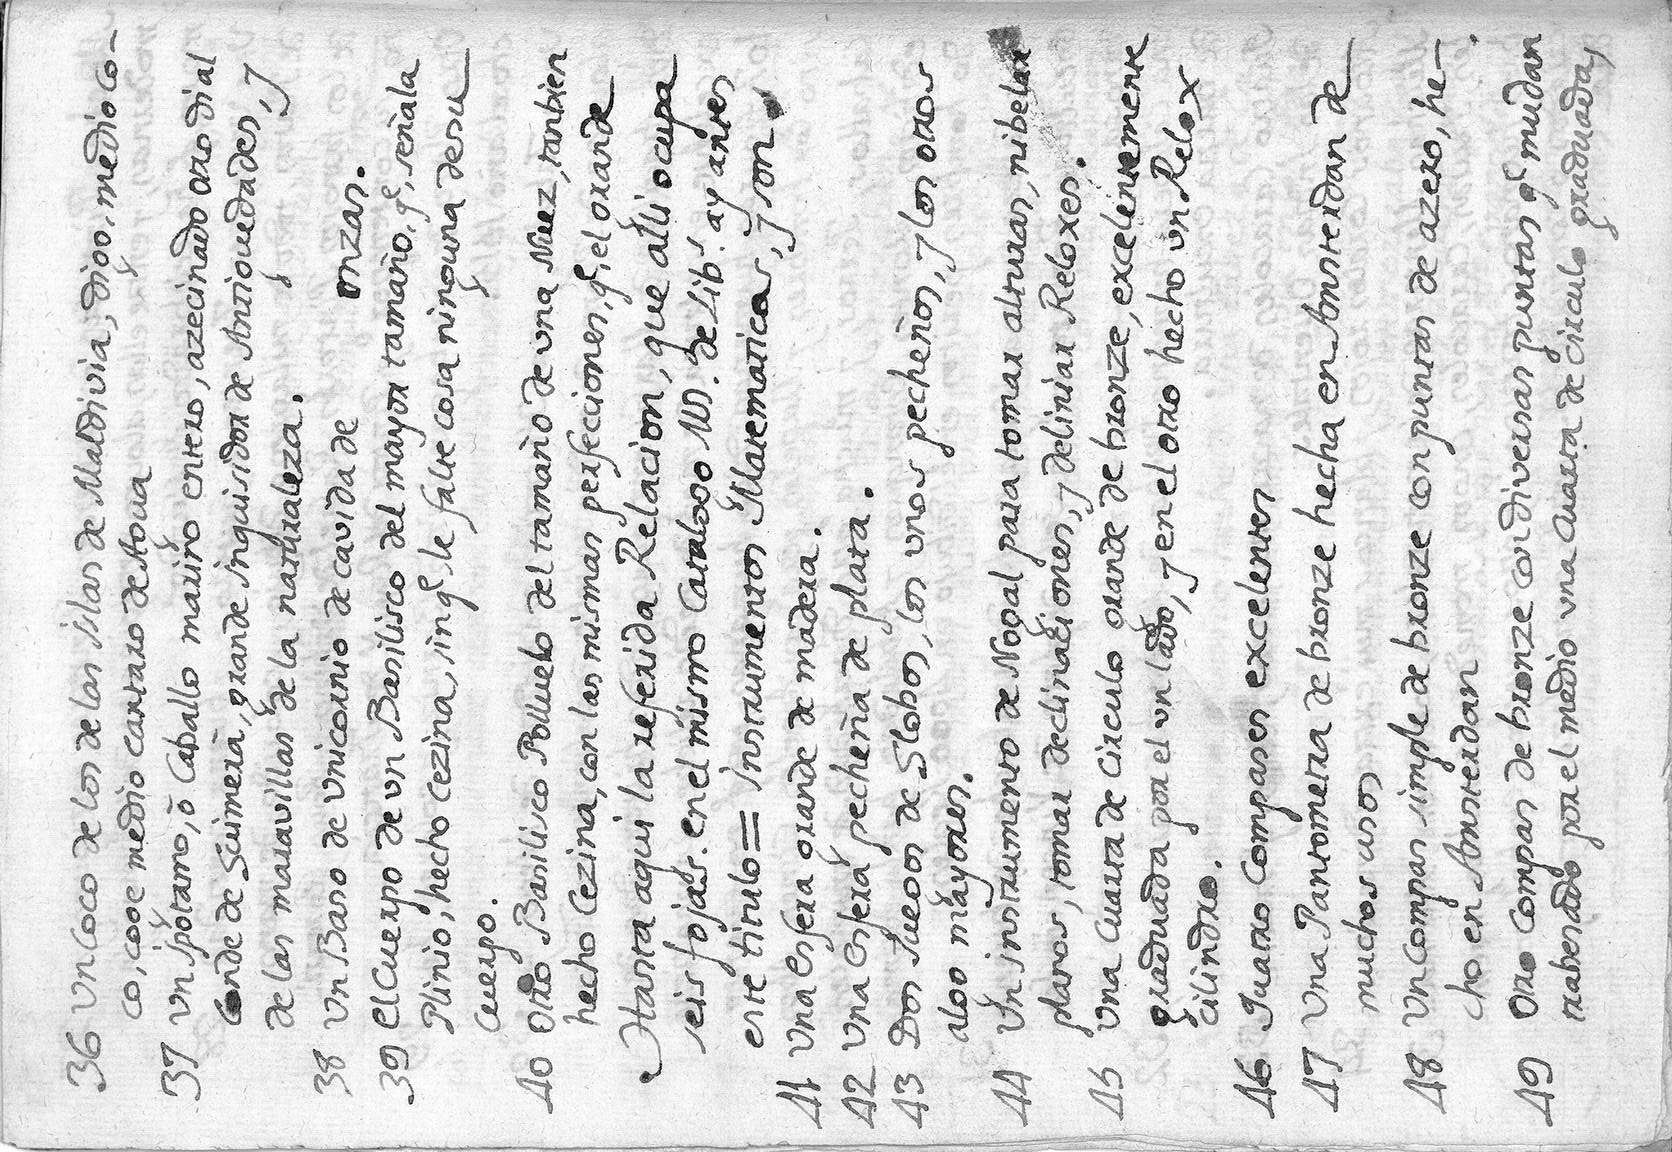 36 Un Coco de los de las Islas de Maldivia, digo, medio Co-
co, coge medio cantaro de Agua
37 Un ipotamo, ò Caballo marino entero, azecinado otro dial
Conde de Guimerà, grande inquisidor de Antiguedades, y
de las maravillas de la naturaleza.
38 Un Baso de Unicornio de cavida de onzas.
39 El Cuerpo de un Basilisco del mayor tamaño, qe, señala
Plinio, hecho Cezina, sin qe le falte cosa ninguna de su
Cuerpo.
40 Otro Basilisco Polluelo del tamaño de una Nuez, tanbien
hecho Cezina, con las mismas perfecciones, qe, el grande
Hasta aqui la referida Relacion, que alli ocupa
seis fojas. en el mismo Catalogo Ms. de Libs. ay antes
este titulo = Instrumentos Matematicos, y son.
41 Una Esfera grande de madera.
42 Una Esfera pecheña de plata.
43 Dos Juegos de Globos, los unos pecheños, y los otros
algo mayores.
44 Un instrumento de Nogal para tomar alturas, nibelar
planos, tomar declinaciones, y deliniar Reloxes.
45 Una Cuarta de Circulo grande de bronze, excelentemente
graduada por el un lado, y en el otro hecho un Relox
Cilindro.
46 Quatro Compases excelentes
47 Una Pantometra de bronze hecha en Amsterdan de
muchos usos
48 Un Compas simple de bronze con puntas de azero, he-
cho en Amsterdan
49 Otro Compas de bronze con diversas puntas qe mudan
trabesado por el medio una Cuarta de Circulo graduada,